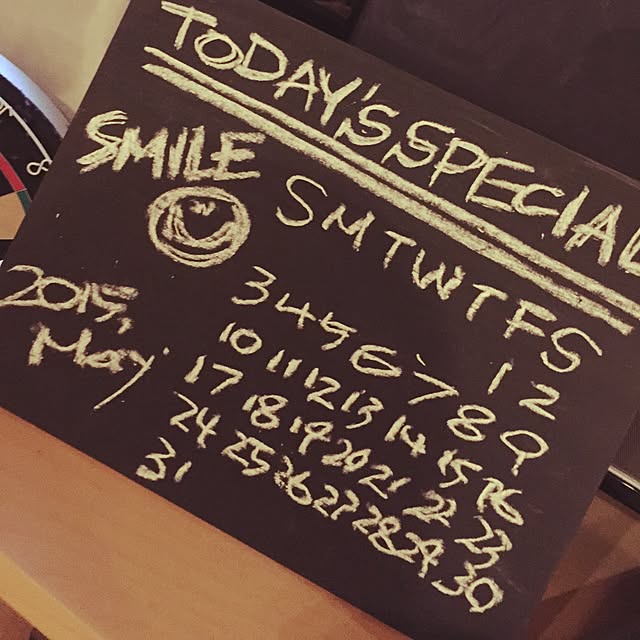 TODAY'S SPECIAL
SMILE
2015, May.
S M T W T F S
1 2
3 4 5 6 7 8 9
10 11 12 13 14 15 16
17 18 19 20 21 22 23
24 25 26 27 28 29 30
31